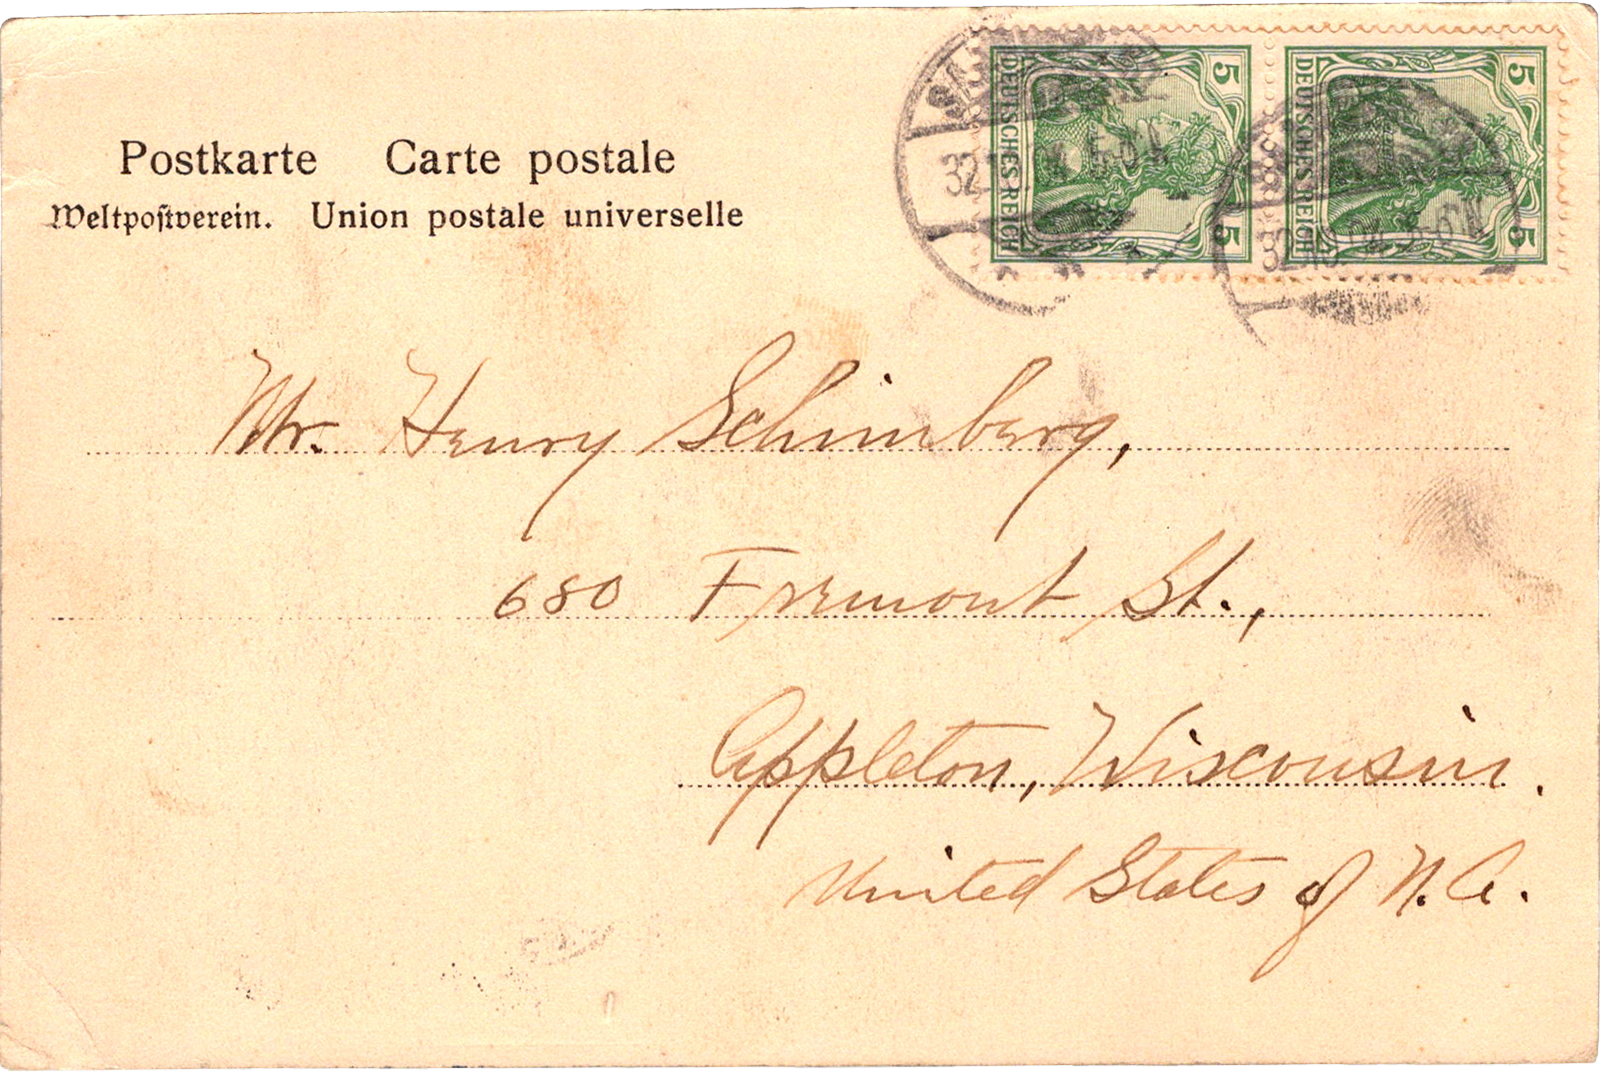 Postkarte Carte postale
Weltpostverein. Union postale universelle
5 DEUTSCHES REICH 5
5 DEUTSCHES REICH 5
Mr. Henry Schimberg,
680 Fremont St.,
Appleton, Wisconsin.
United States of N. A.